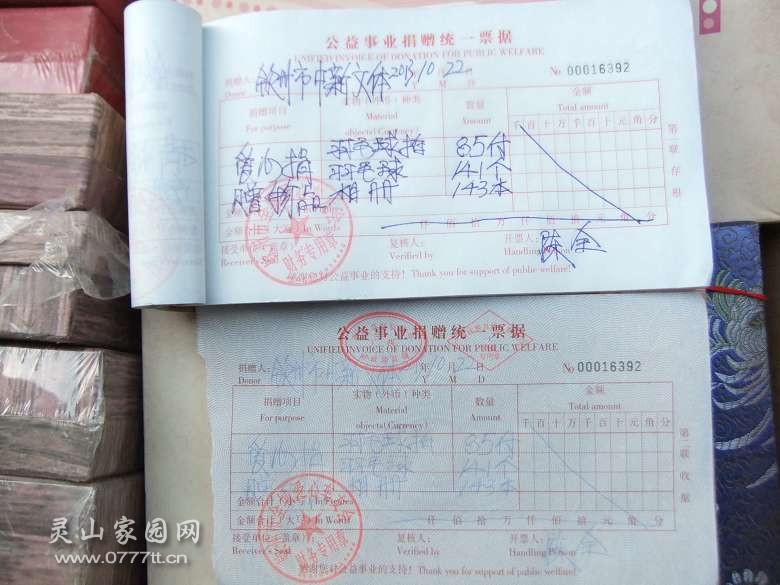 公益事业捐赠统一票据
UNIFIED INVOICE OF DONATION FOR PUBLIC WELFARE
捐赠人: 钦州市中新文体 2013.10.22 No 00016392
Donor Y M D
捐赠项目 实物(外币)种类 数量 金额
For purpose Material objects(Currency) Amount Total amount
千百十万千百十元角分
爱心捐 羽毛球拍 85付
羽毛球 141个
赠物品 相册 143本
金额合计(大写)In Words 仟佰拾万仟佰拾元角分
接受单位(盖章): 复核人: 开票人: 陈全
Receiver's Seal Verified by Handling Person
感谢您对公益事业的支持! Thank you for support of public welfare!
第一联存根
财务专用章
公益事业捐赠统一票据
UNIFIED INVOICE OF DONATION FOR PUBLIC WELFARE
捐赠人: 钦州市中新 10 22 No 00016392
Donor 年 月 日
Y M D
捐赠项目 实物(外币)种类 数量 金额
For purpose Material objects(Currency) Amount Total amount
千百十万千百十元角分
爱心捐 羽毛球拍 85付
羽毛球 141个
相册 143本
金额合计(小写)In Figures
金额合计(大写)In Words 仟佰拾万仟佰拾元角分
接受单位(盖章): 复核人: 开票人: 陈全
Receiver's Seal Verified by Handling Person
感谢您对公益事业的支持! Thank you for support of public welfare!
第二联收据
财务专用章
灵山家园网
www.0777tt.cn